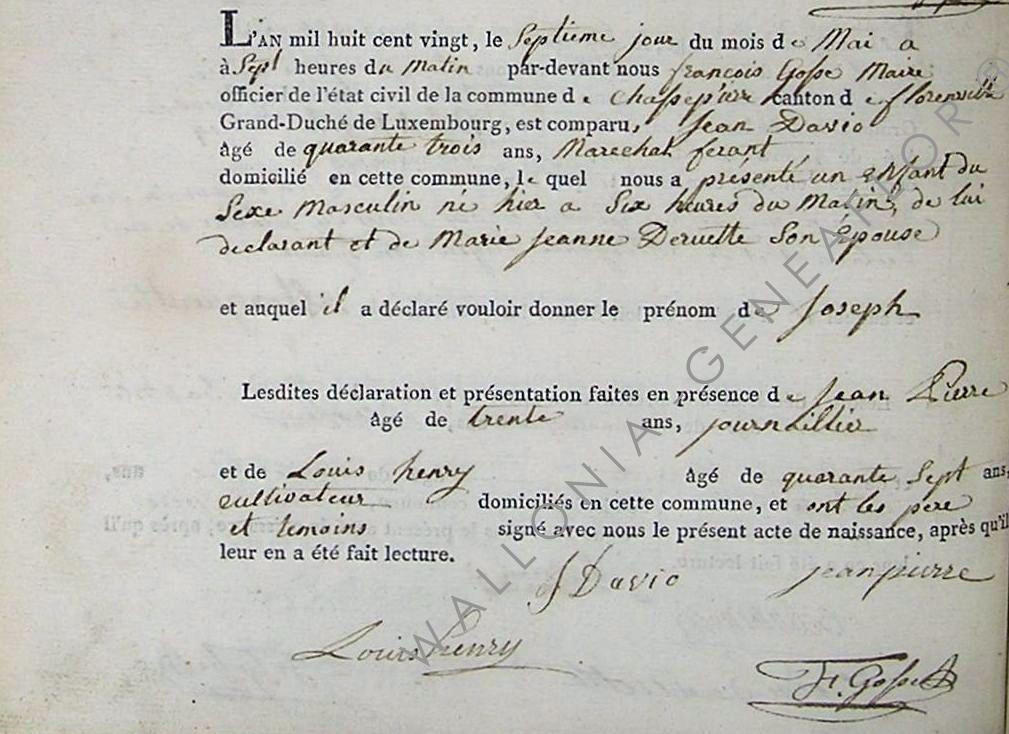 L'AN mil huit cent vingt, le Septieme jour du mois de Mai a
à Sept heures du Matin par-devant nous françois Gosse Maire
officier de l'état civil de la commune de Chassepierre canton de florenville
Grand-Duché de Luxembourg, est comparu, Jean Davio
âgé de quarante trois ans, Marechal ferant
domicilié en cette commune, le quel nous a présenté un enfant du
Sexe Masculin né hier a Six heures du Matin, de lui
declarant et de Marie Jeanne Deruette Son Épouse
et auquel il a déclaré vouloir donner le prénom de Joseph
Lesdites déclaration et présentation faites en présence de Jean Pierre
âgé de trente ans, journallier
et de Louis henry âgé de quarante Sept ans,
cultivateur domiciliés en cette commune, et ont les pere
et temoins signé avec nous le présent acte de naissance, après qu'il
leur en a été fait lecture.
J Davio jean pierre
Louis henry
F. Gosse
WALLONIA GENEAFLOR